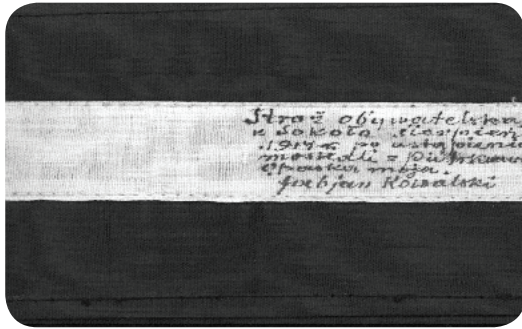 Straż obywatelska
z Sokoła sierpień
1914 r po ustąpieniu
moskali z Piotrkowa
Opaska moja.
Kowalski